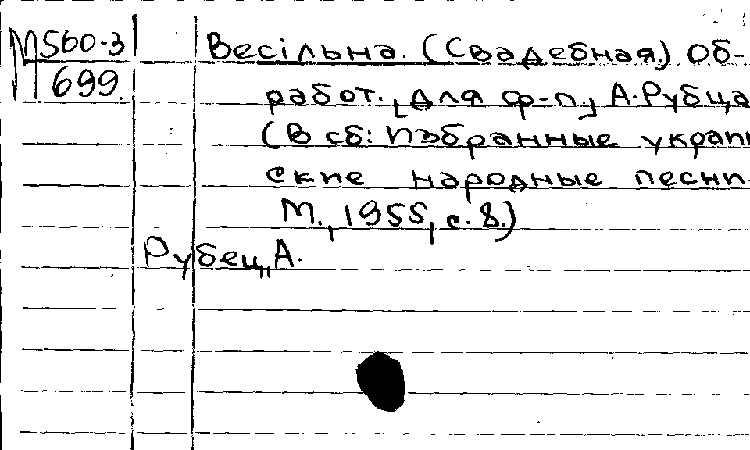 М560-3
699
Весільна. (Свадебная.) Об-
работ. [для ф-п] А. Рубца
(В сб: Избранные украи
ские народные песни
М., 1955, с. 8.)
Рубец, А.